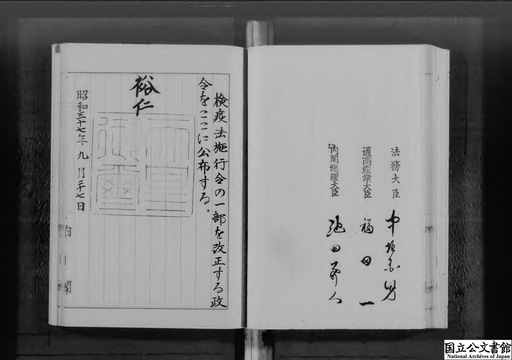 法務大臣 中垣國男
通商産業大臣 福田一
内閣総理大臣 池田勇人
検疫法施行令の一部を改正する政
令をここに公布する。
裕仁
昭和三十七年九月二十七日
内閣
国立公文書館
National Archives of Japan